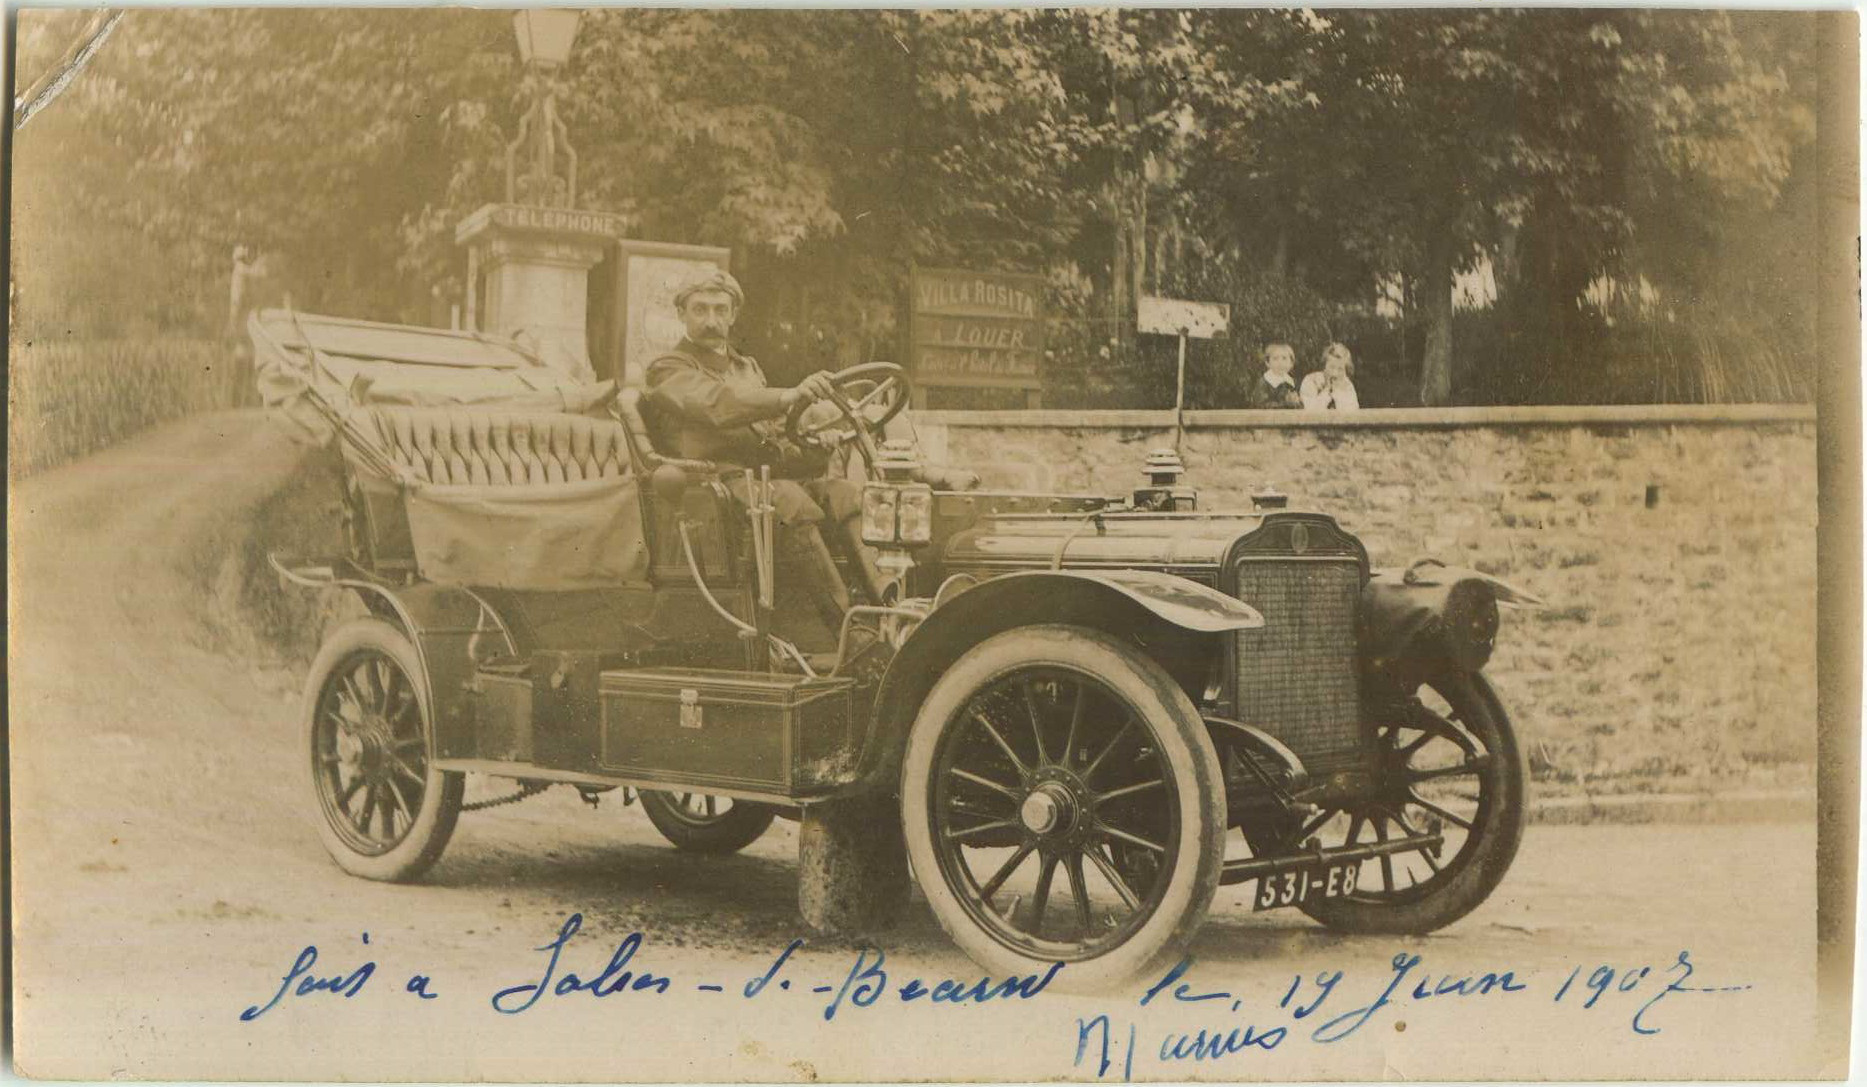 TÉLÉPHONE
VILLA ROSITA
A LOUER
531-E8
fait a Salies-d.-Bearn le, 19 Juin 1907
Marius